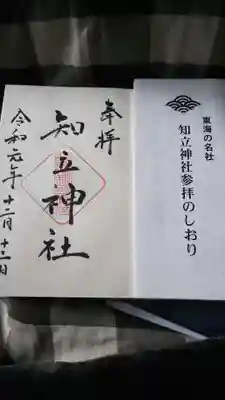 奉拝
知立神社
令和元年十二月十二日
東海の名社
知立神社参拝のしおり